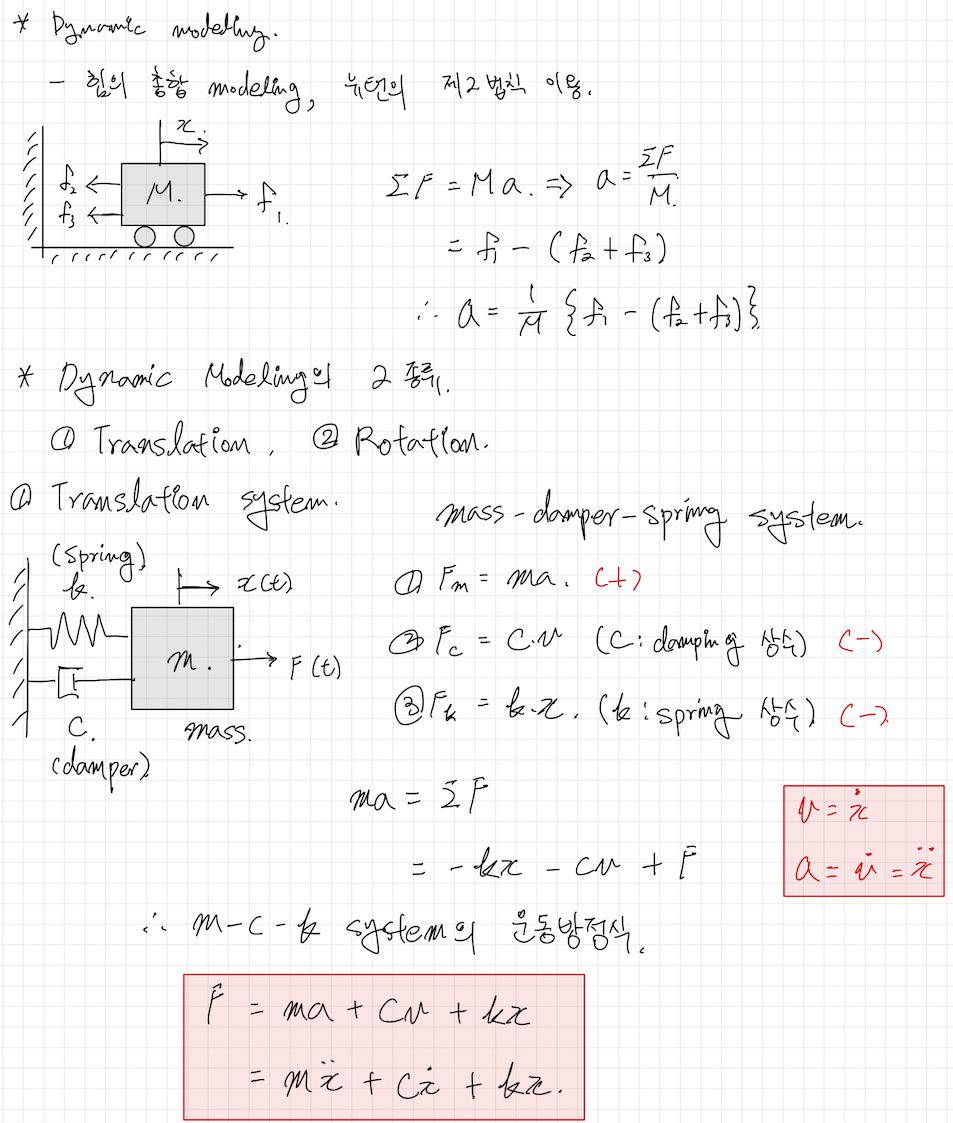 * Dynamic modeling.
- 힘의 총합 modeling, 뉴턴의 제2법칙 이용.
x.
f₂
f₃
M.
f₁.
ΣF = Ma. ⇒ a = ΣF/M.
= f₁ - (f₂ + f₃)
∴ a = 1/M {f₁ - (f₂ + f₃)}.
* Dynamic Modeling의 2종류.
① Translation, ② Rotation.
① Translation system.
mass-damper-spring system.
(spring)
k.
x(t)
m.
F(t)
C.
(damper)
mass.
① Fm = ma. (+)
② Fc = C·v (C: damping 상수) (-)
③ Fk = k·x. (k: spring 상수) (-)
ma = ΣF
= -kx - cv + F
v = ẋ
a = v̇ = ẍ
∴ m-c-k system의 운동방정식.
F = ma + Cv + kx
= mẍ + Cẋ + kx.